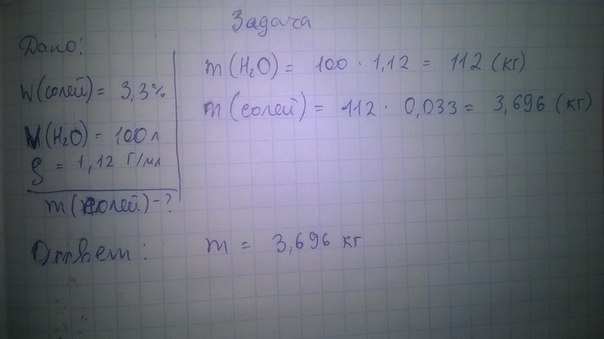 Задача
Дано:
W(солей) = 3,3%
V(H₂O) = 100л
ρ = 1,12 г/мл
m(солей) - ?
m(H₂O) = 100 · 1,12 = 112 (кг)
m(солей) = 112 · 0,033 = 3,696 (кг)
Ответ: m = 3,696 кг